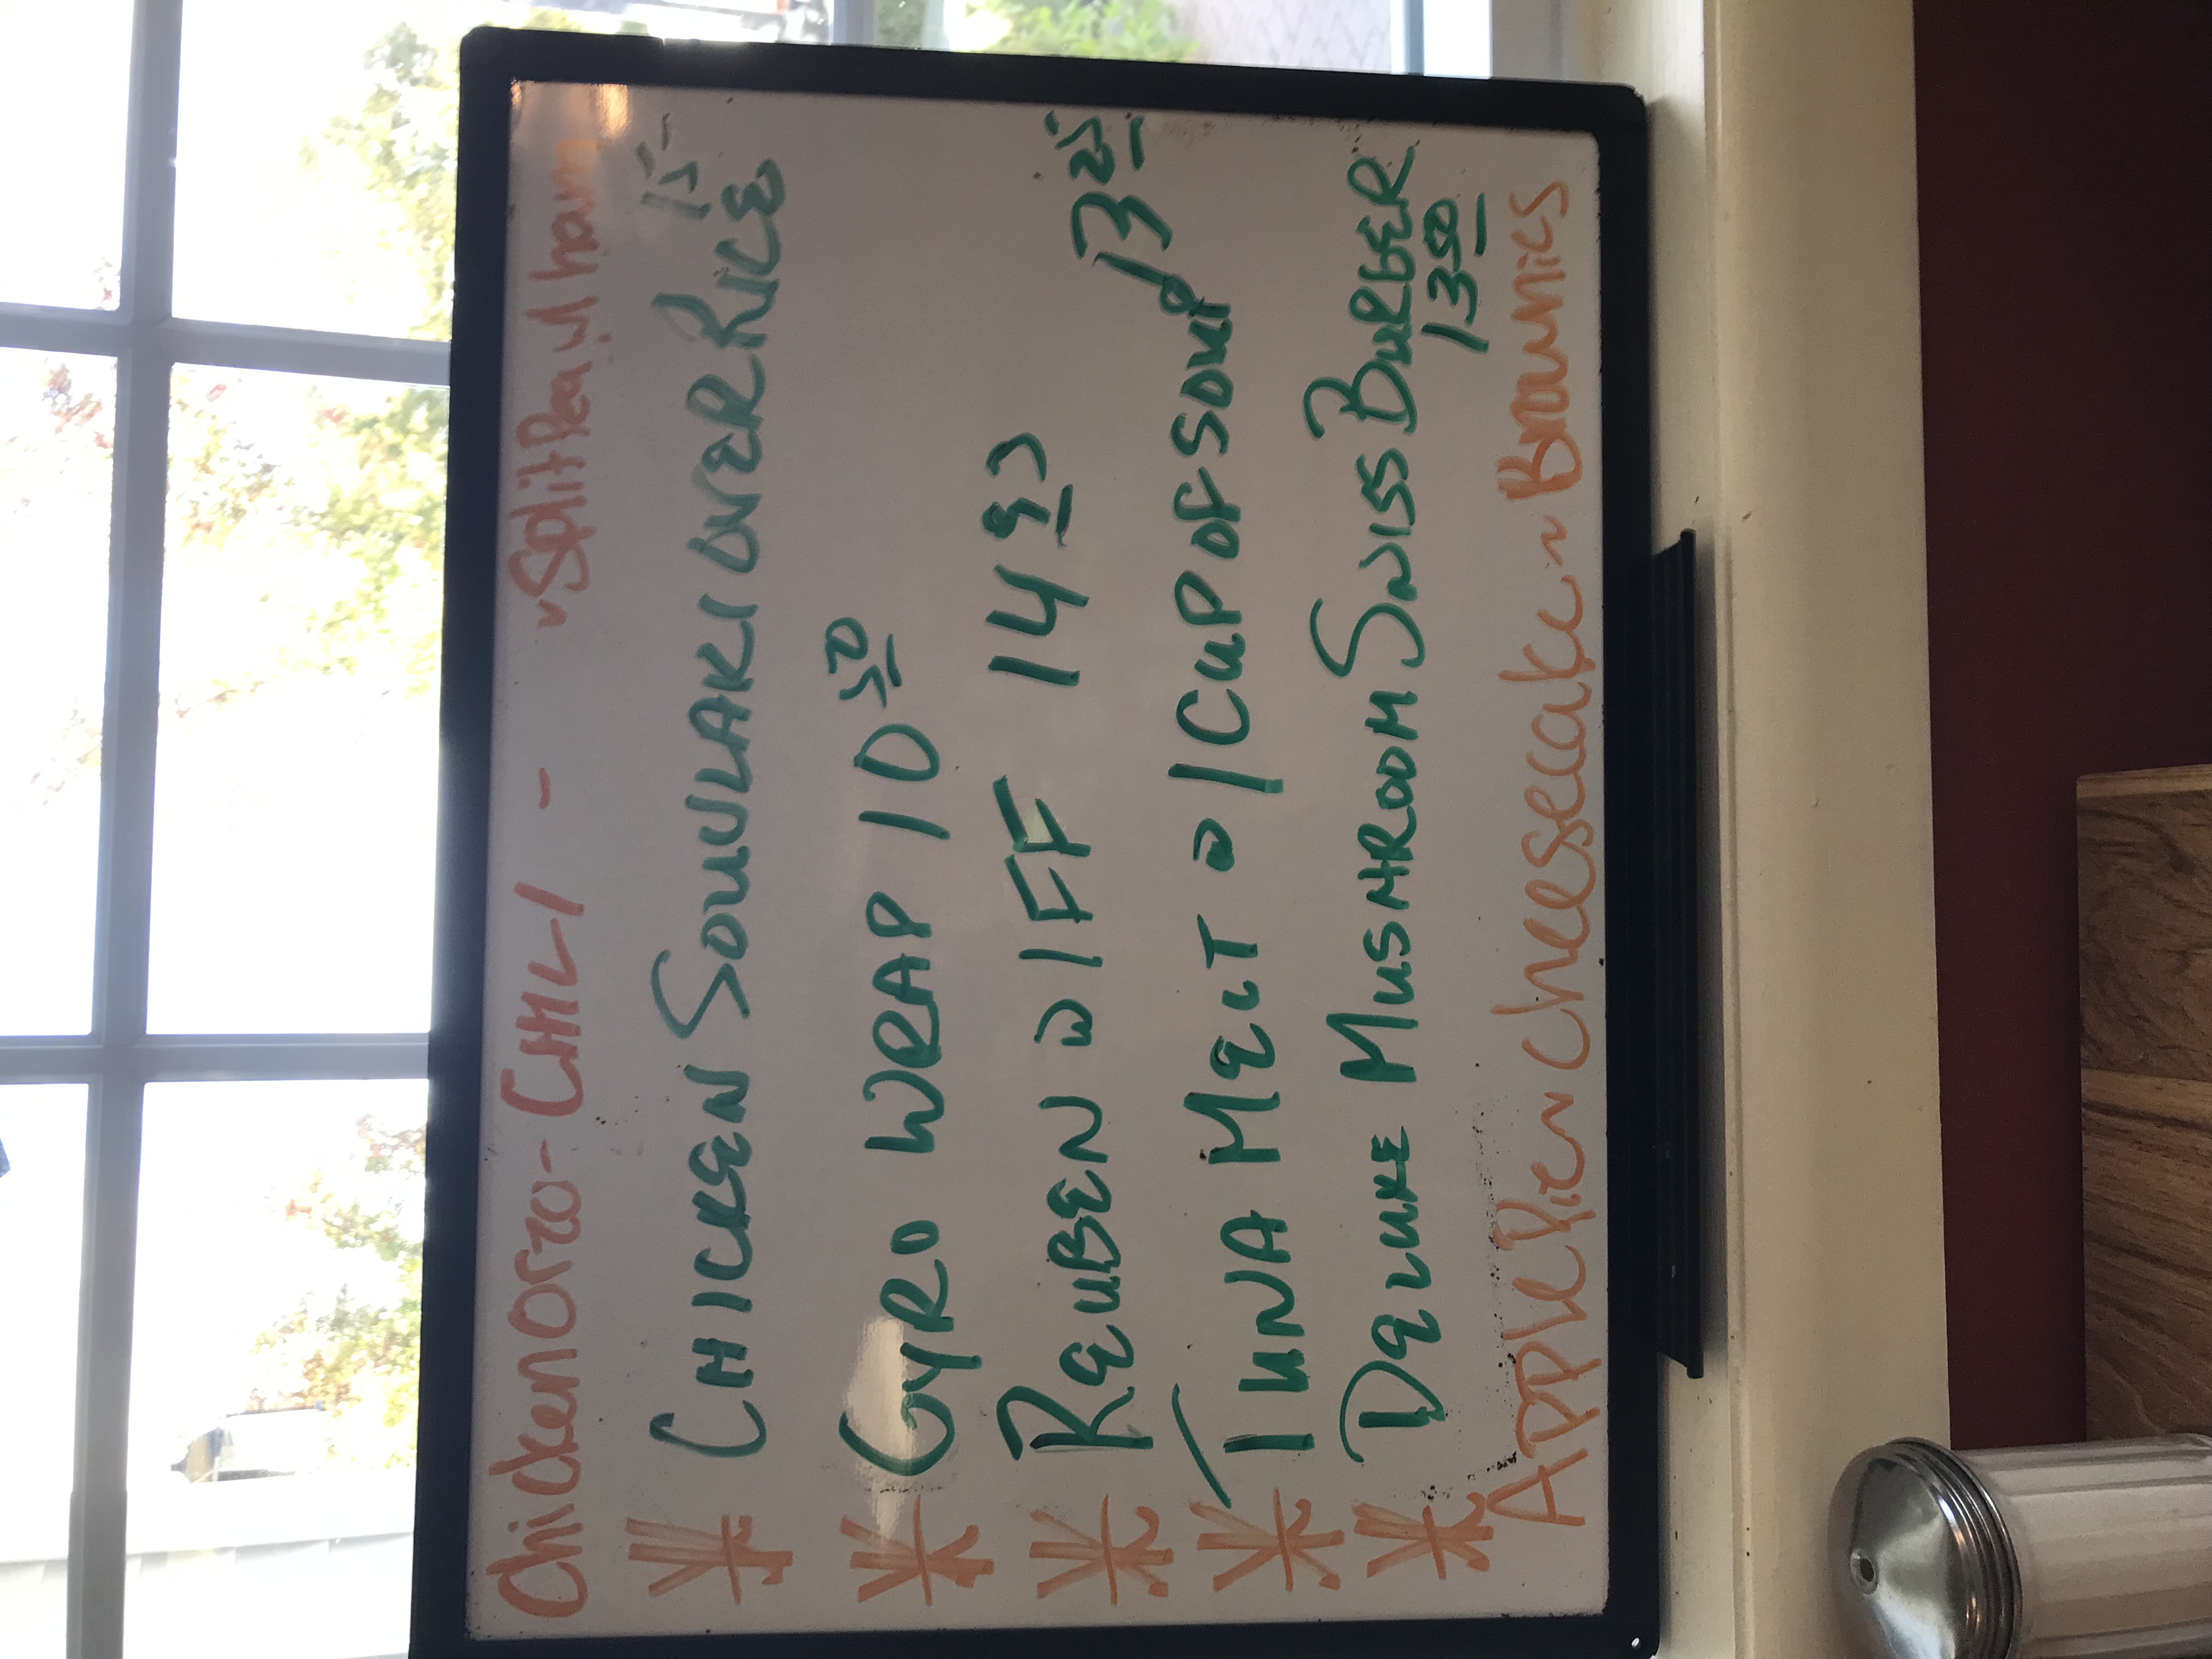 Chicken Orzo - CHILI - ~ Split Pea w/ ham
CHICKEN SOUVLAKI OVER RICE 15-
GYRO WRAP 10 50
REUBEN W/FF 14 95
TUNA MELT W/CUP OF SOUP 13 25
DELUXE MUSHROOM SWISS BURGER
13 50
Apple Pie ~ Cheesecake ~ Brownies